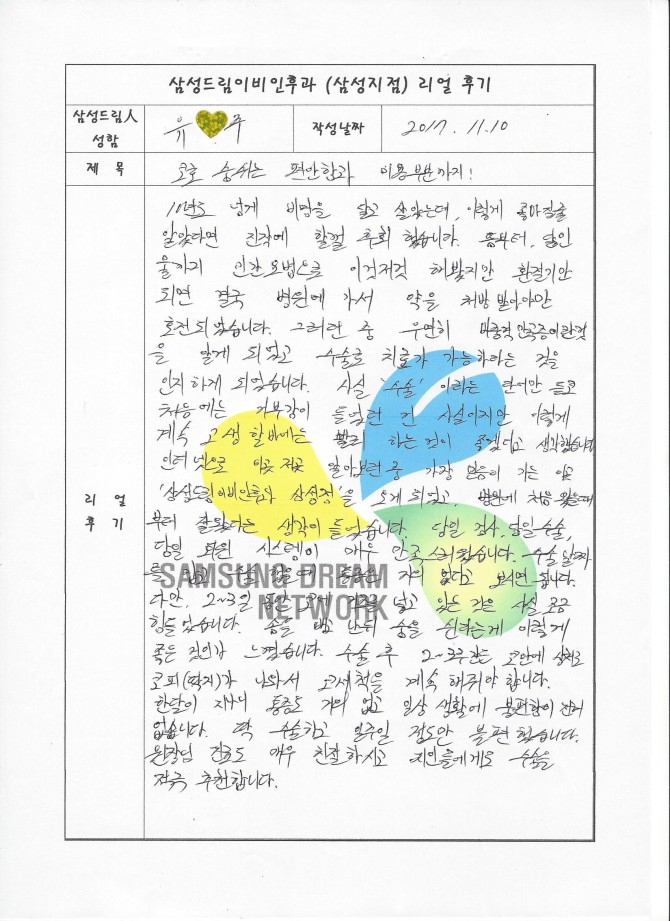 삼성드림이비인후과 (삼성지점) 리얼 후기
삼성드림人
성함
유 주
작성날짜
2017. 11. 10
제 목
코로 숨쉬는 편안함과 미용부분까지!
리 얼
후 기
10년도 넘게 비염을 달고 살았는데, 이렇게 좋아질줄
알았다면 진작에 할껄 후회 했습니다. 뜸부터, 달인
물까지 민간요법으로 이것저것 해봤지만 환절기만
되면 결국 병원에 가서 약을 처방 받아야만
호전되었습니다. 그러던 중 우연히 비중격만곡증이란것
을 알게 되었고 수술로 치료가 가능하다는 것을
인지하게 되었습니다. 사실 '수술' 이라는 단어만 듣고
처음에는 거부감이 들었던 건 사실이지만 이렇게
계속 고생할바에는 빨리 하는것이 좋겠다고 생각했습니다
인터넷으로 이곳 저곳 알아보던 중 가장 믿음이 가는 이곳
'삼성드림이비인후과 삼성점'을 오게 되었고, 처음 왔을때
부터 잘왔다는 생각이 들었습니다. 당일 검사, 당일 수술,
당일 퇴원 시스템이 매우 만족스러웠습니다. 수술 날짜
를 잡고 수술 할 때에 통증은 거의 없다고 보시면 됩니다.
SAMSUNG DREAM
NETWORK
다만, 2~3일 동안 코에 거즈를 넣고 있는 것은 사실 조금
힘들었습니다. 솜을 빼고 난뒤 숨을 쉰다는게 이렇게
좋은 것인가 느꼈습니다. 수술 후 2~3주간은 코안에 상처로
코피(딱지)가 나와서 코세척을 계속 해줘야 합니다.
한달이 지나니 통증도 거의 없고 일상 생활에 불편함이 전혀
없습니다. 딱 수술하고 일주일 정도만 불편 했습니다.
원장님 진료도 매우 친절하시고 지인들에게도 수술을
적극 추천합니다.